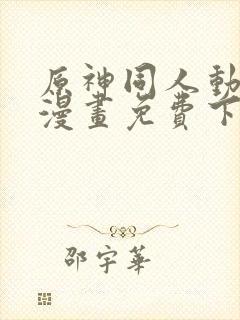 原神同人動
漫畫免費下
邵宇華